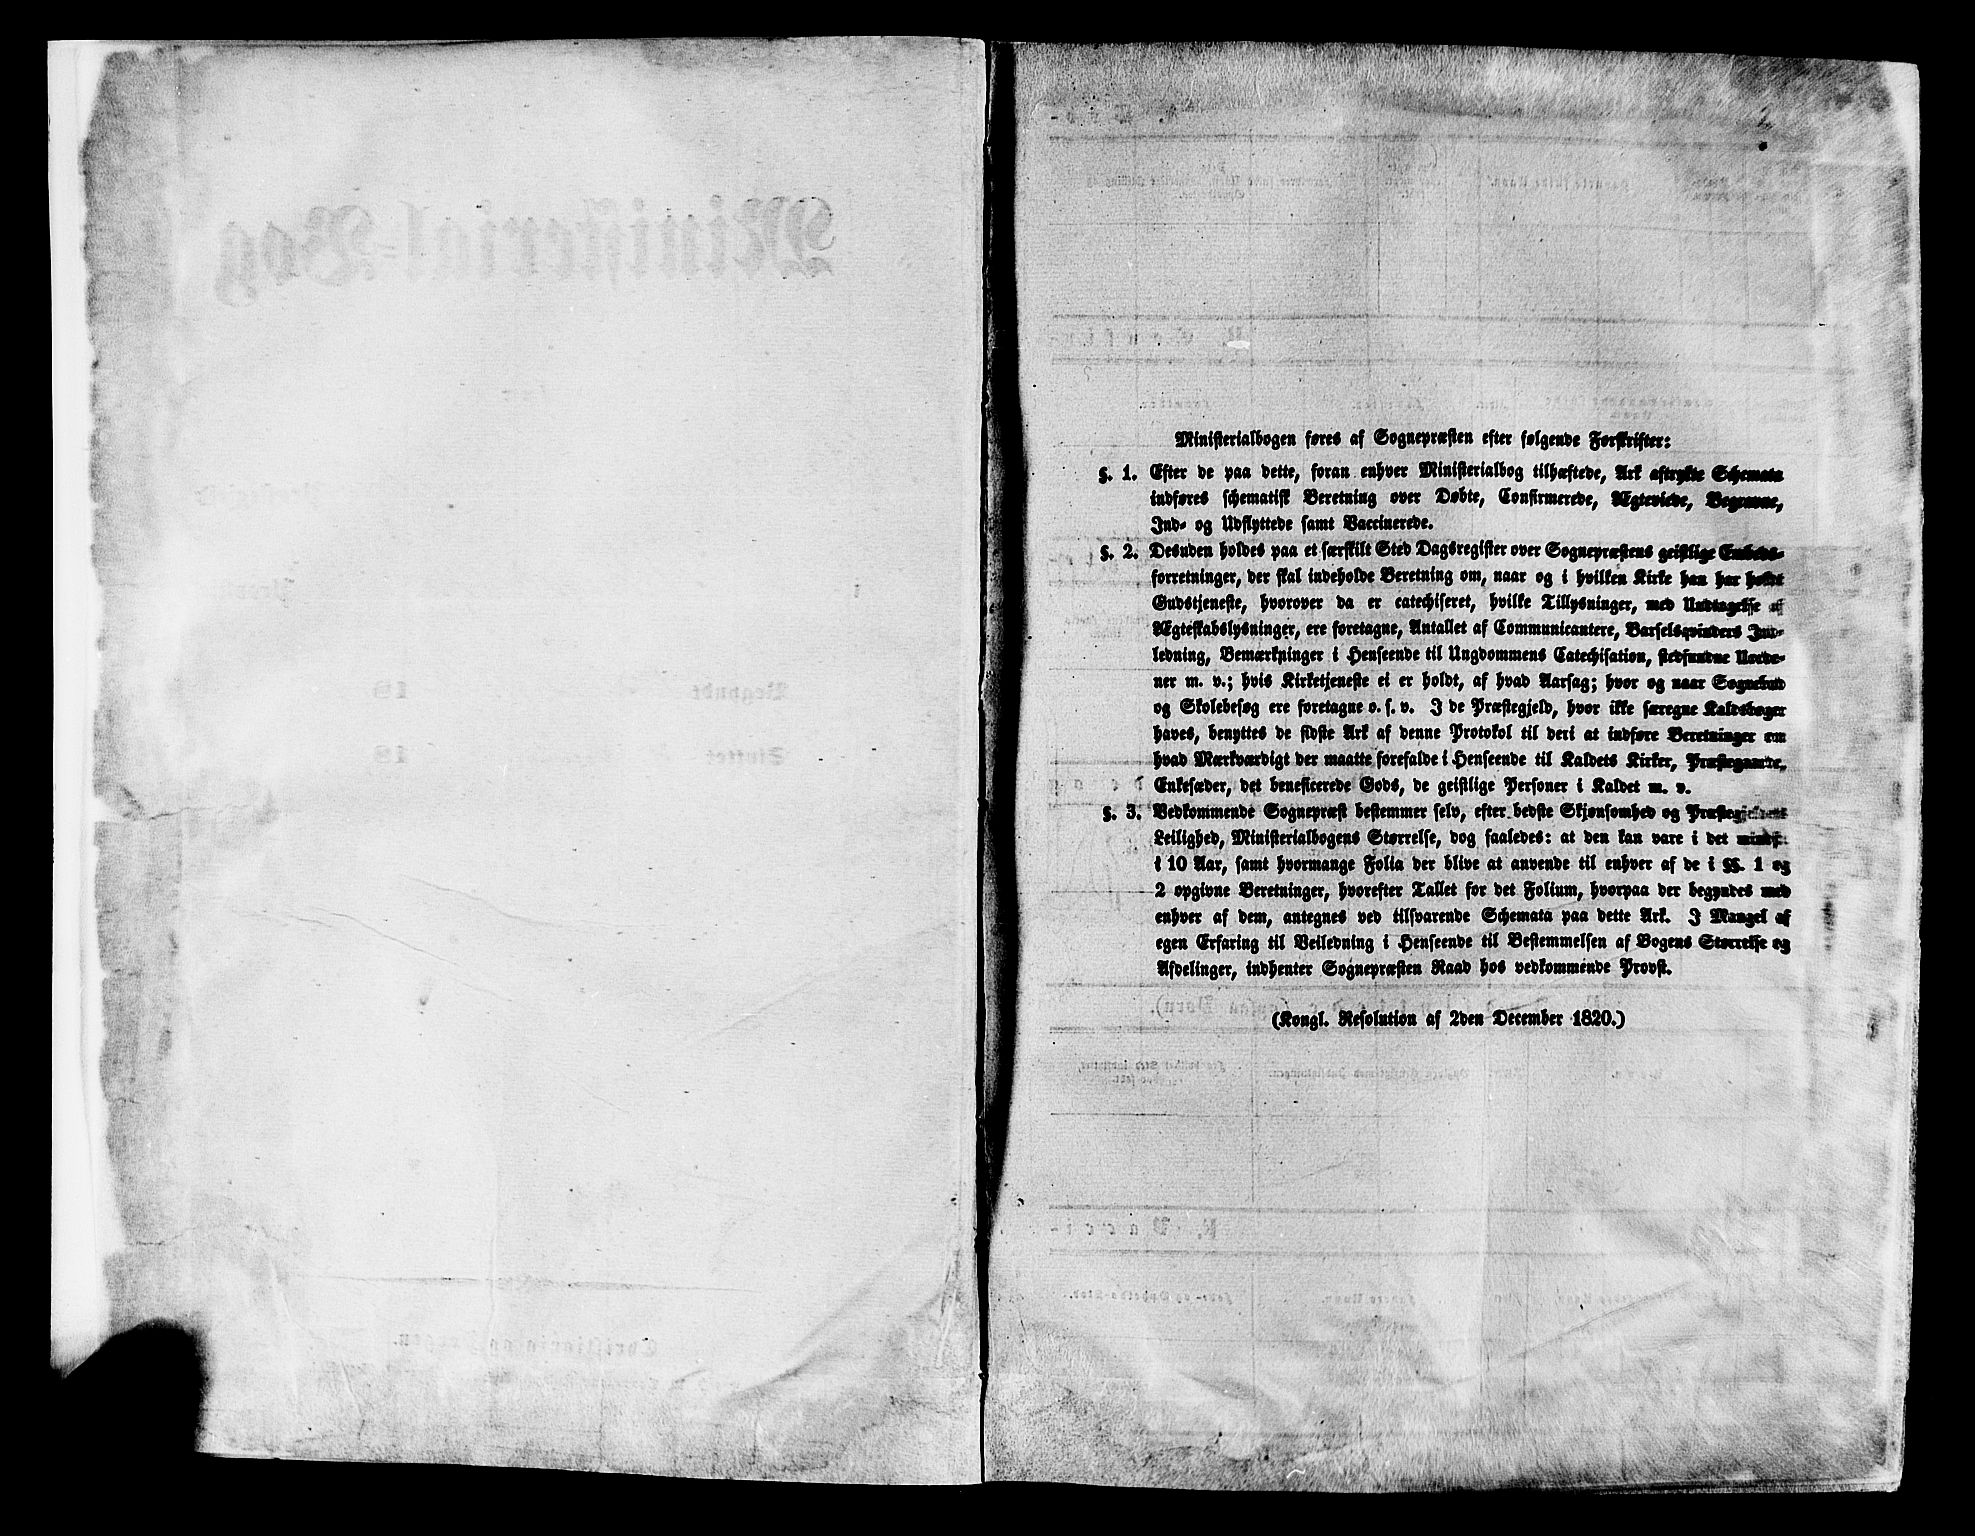 Ministerialbogen føres af Sognepræsten efter følgende Forskrifter:
§. 1. Efter de paa dette, foran enhver Ministerialbog tilhæftede, Ark aftrykte Schemata
indføres schematisk Beretning over Døbte, Confirmerede, Ægteviede, Begravne,
Ind- og Udflyttede samt Vaccinerede.
§. 2. Desuden holdes paa et særskilt Sted Dagsregister over Sognepræstens geistlige Embeds-
forretninger, der skal indeholde Beretning om, naar og i hvilken Kirke han har holdt
Gudstjeneste, hvorover da er catechiseret, hvilke Tillysninger, med Undtagelse af
Ægteskabslysninger, ere foretagne, Antallet af Communicantere, Barselqvinders Ind-
ledning, Bemærkninger i Henseende til Ungdommens Catechisation, stedfundne Uorde-
ner m. v.; hvis Kirketjeneste ei er holdt, af hvad Aarsag; hvor og naar Sognebud
og Skolebesøg ere foretagne o. s. v. I de Præstegjeld, hvor ikke særegne Kaldsbøger
haves, benyttes de sidste Ark af denne Protokol til deri at indføre Beretninger om
hvad Mærkværdigt der maatte forefalde i Henseende til Kaldets Kirker, Præstegaarde,
Enkesæder, det beneficerede Gods, de geistlige Personer i Kaldet m. v.
§. 3. Vedkommende Sognepræst bestemmer selv, efter bedste Skjønsomhed og Præstegjeldets
Leilighed, Ministerialbogens Størrelse, dog saaledes: at den kan vare i det mindste
i 10 Aar, samt hvormange Folia der blive at anvende til enhver af de i §§. 1 og
2 opgivne Beretninger, hvorefter Tallet for det Folium, hvorpaa der begyndes med
enhver af dem, antegnes ved tilsvarende Schemata paa dette Ark. I Mangel af
egen Erfaring til Veiledning i Henseende til Bestemmelsen af Bogens Størrelse og
Afdelinger, indhenter Sognepræsten Raad hos vedkommende Provst.
(Kongl. Resolution af 2den December 1820.)